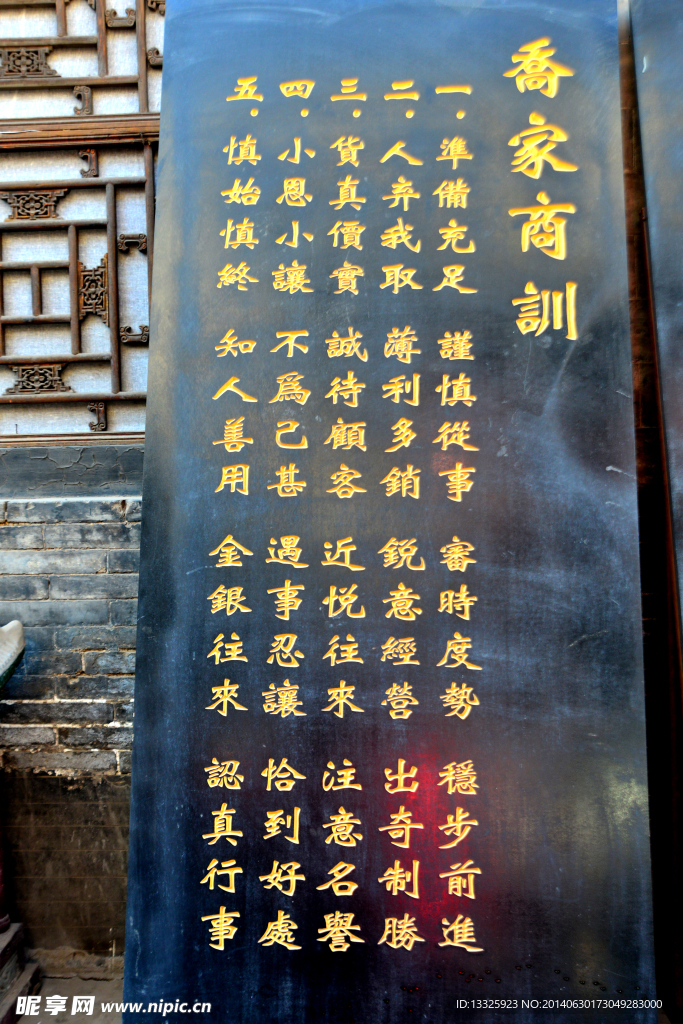 喬家商訓
一．準備充足 謹慎從事 審時度勢 穩步前進
二．人弃我取 薄利多銷 銳意經營 出奇制勝
三．貨真價實 誠待顧客 近悦往來 注意名譽
四．小恩小讓 不爲己甚 遇事忍讓 恰到好處
五．慎始慎終 知人善用 金銀往來 認真行事
昵享网 www.nipic.cn
ID:13325923 NO:20140630173049283000